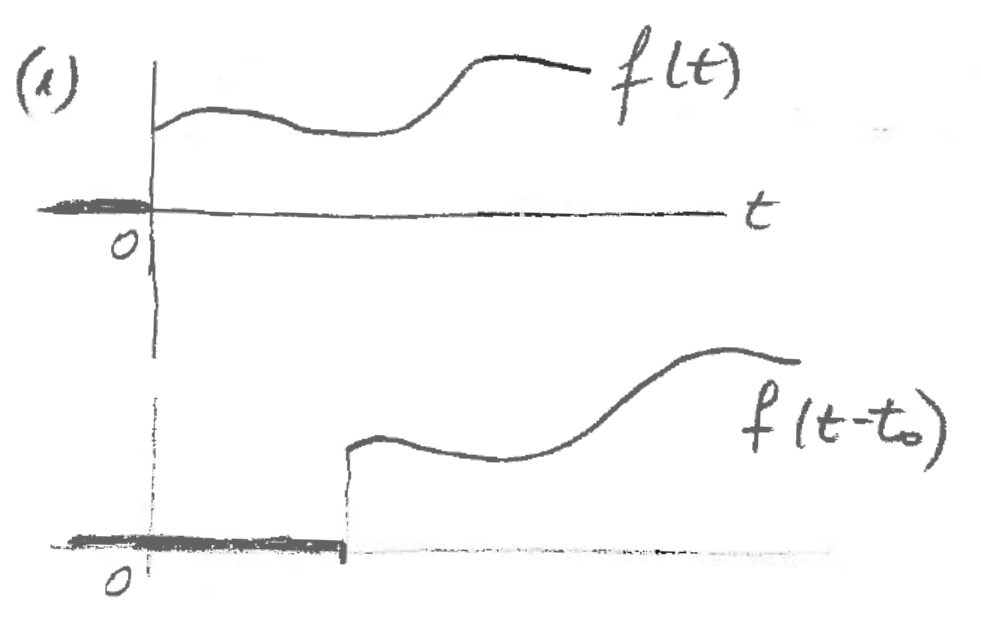 (1)
f(t)
t
0
f(t-t₀)
0